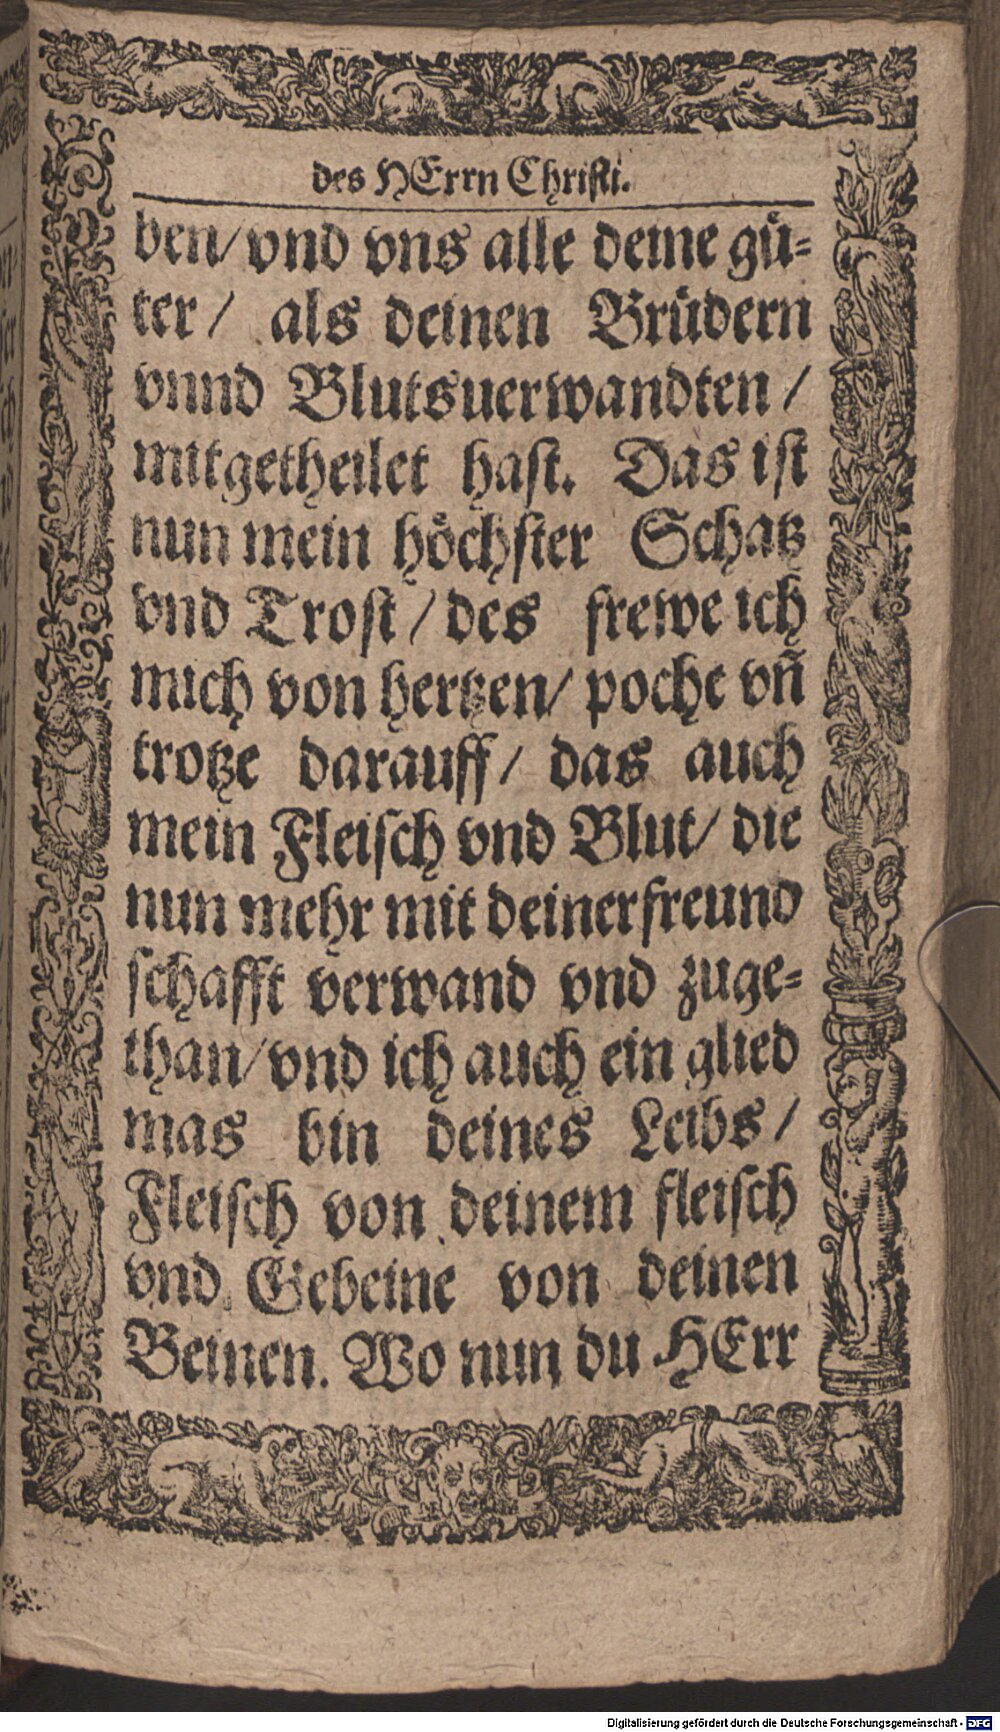 des HErrn Christi.
ben/ vnd vns alle deine gü-
ter/ als deinen Brüdern
vnnd Blutsuerwandten/
mitgetheilet hast. Das ist
nun mein höchster Schatz
vnd Trost/ des frewe ich
mich von hertzen/ poche vñ
trotze darauff/ das auch
mein Fleisch vnd Blut/ die
nun mehr mit deiner freund
schafft verwand vnd zuge-
than/ vnd ich auch ein glied
mas bin deines Leibs/
Fleisch von deinem fleisch
vnd Gebeine von deinen
Beinen. Wo nun du HErr
Digitalisierung gefördert durch die Deutsche Forschungsgemeinschaft - DFG